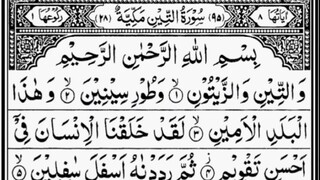 اٰیَاتُهَا ٨ (٩٥) سُوْرَةُ التِّیْنِ مَکِّیَّةٌ (٢٨) رُکُوْعُهَا ١
بِسْمِ اللهِ الرَّحْمٰنِ الرَّحِیْمِ
وَالتِّیْنِ وَالزَّیْتُوْنِ ۙ﴿١﴾ وَطُوْرِ سِیْنِیْنَ ۙ﴿٢﴾ وَهٰذَا
الْبَلَدِ الْاَمِیْنِ ۙ﴿٣﴾ لَقَدْ خَلَقْنَا الْاِنْسَانَ فِیْۤ
اَحْسَنِ تَقْوِیْمٍ ۫﴿٤﴾ ثُمَّ رَدَدْنٰهُ اَسْفَلَ سٰفِلِیْنَ ۙ﴿٥﴾